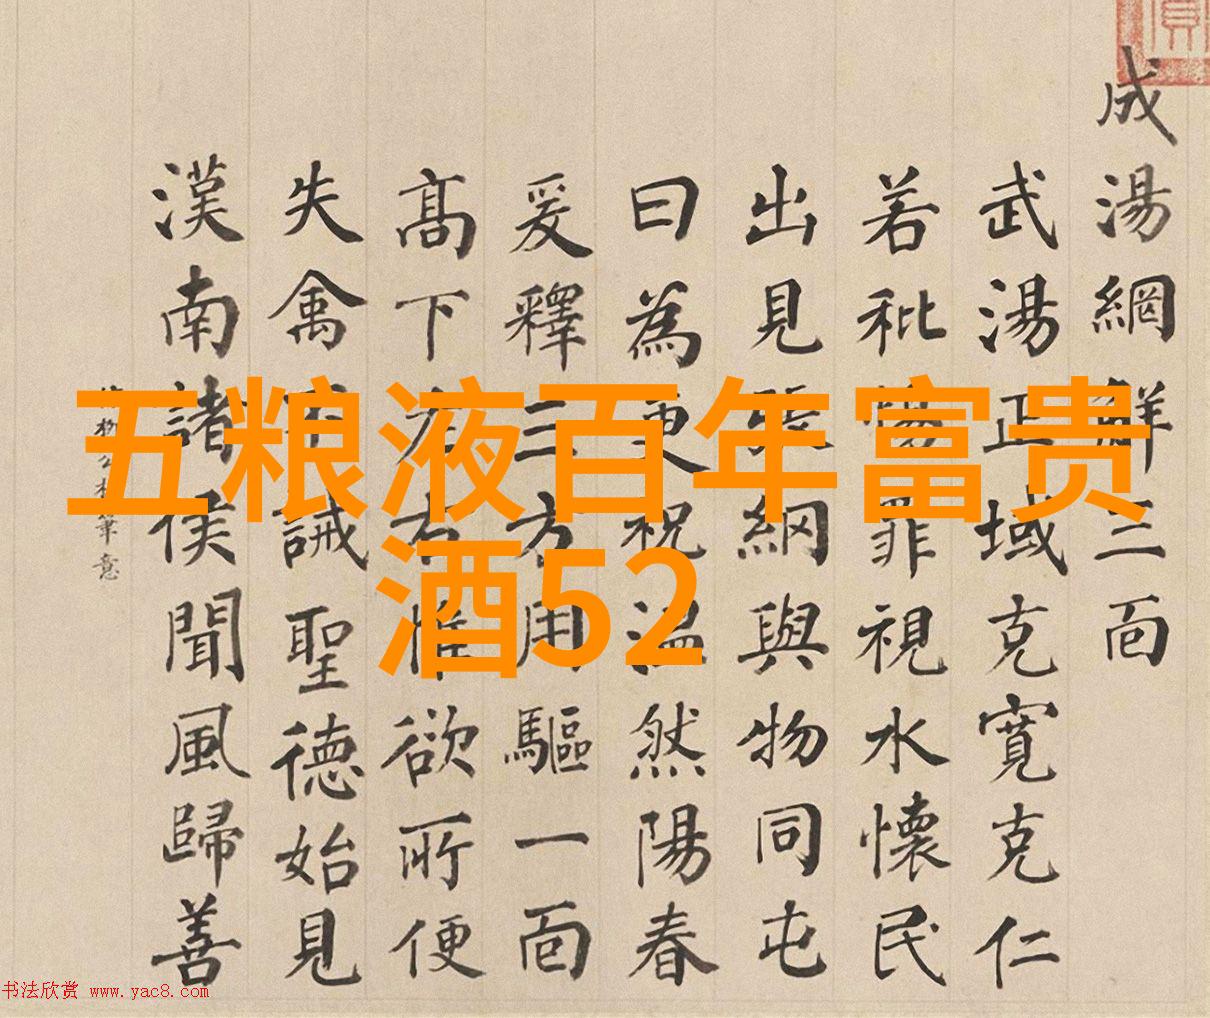 五粮液百年富贵
酒52
成湯網解三面
武湯正域克寬克仁
若秕惕罪視水懷民
出見張網與物同屯
曰為更祝溫然陽春
爰釋三方用驅一面
高下左右惟欲所便
失禽不誡聖德始見
漢南諸侯聞風歸善
柳公權筆意
书法欣赏 www.yac8.com